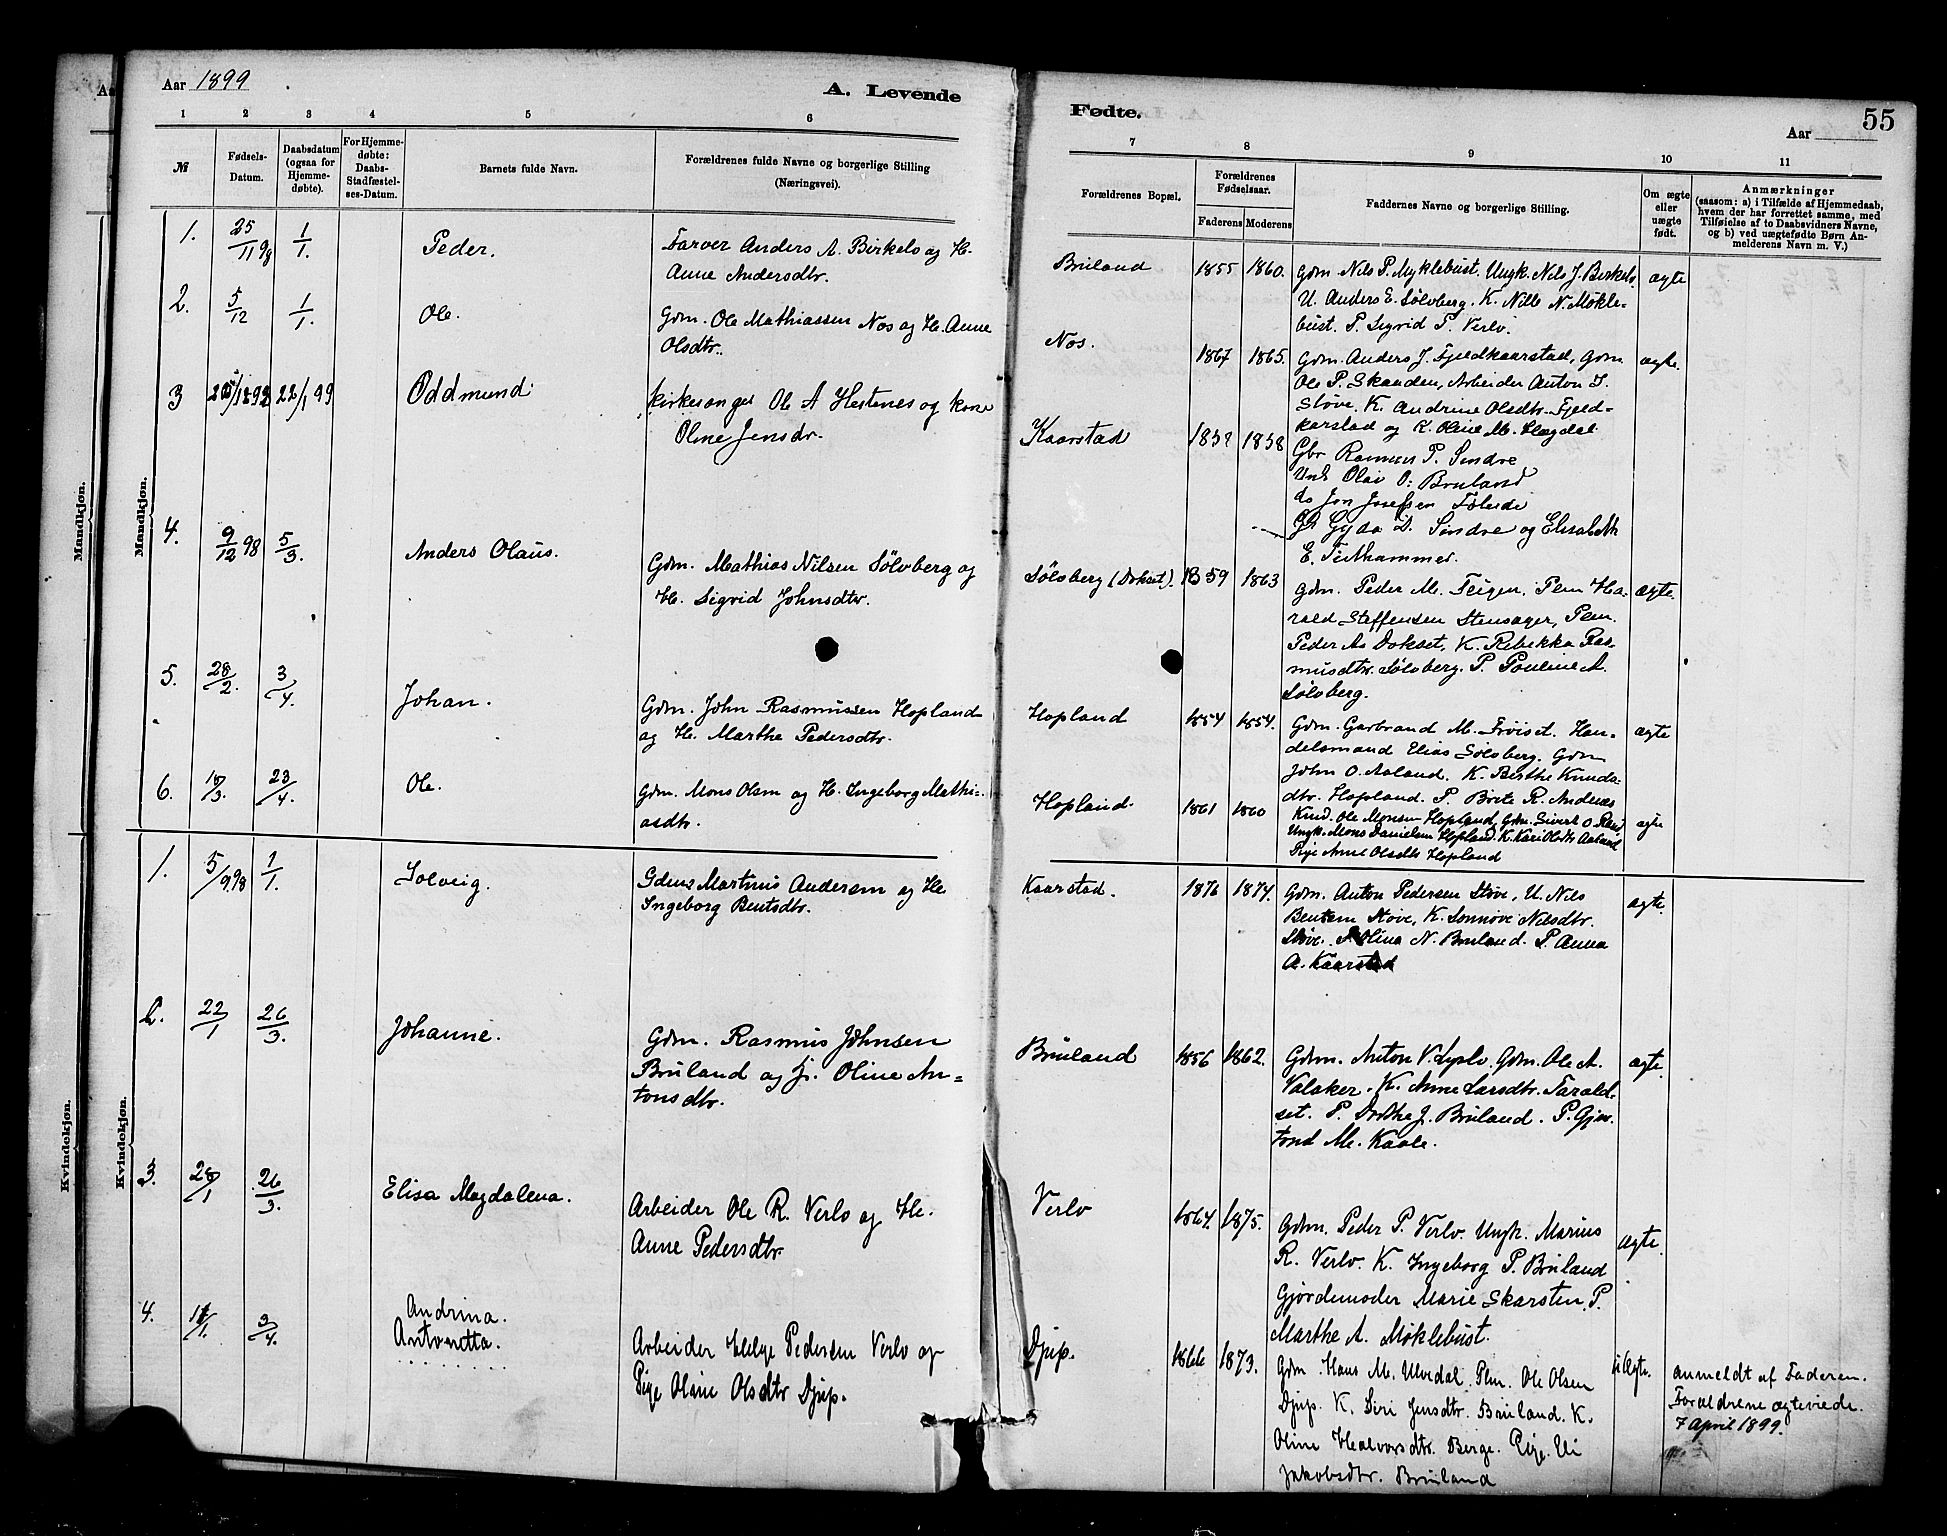 Aar 1899
A. Levende
1 2 3 4 5 6
№
Fødsels-
Datum.
Daabsdatum
(ogsaa for
Hjemme-
døbte).
For Hjemme-
døbte:
Daabs-
Stadfæstel-
ses-Datum.
Barnets fulde Navn.
Forældrenes fulde Navne og borgerlige Stilling
(Næringsvei).
Mandkjøn.
Mandkjøn.
1. 25/11 98 1/1. Peder. Farver Anders A. Birkelo og H.
Anne Andersdtr.
2. 5/12 1/1. Ole. Gdm. Ole Mathiassen Nos og H. Anne
Olsdtr.
3 22/1 99 Oddmund Kirkesanger Ole A Hestenes og kone
Oline Jensdr.
4. 9/12 98 5/3. Anders Olaus. Gdm. Mathias Nilsen Sølvberg og
H. Sigrid Johnsdtr.
5. 28/2. 3/4. Johan. Gdm. John Rasmussen Hopland
og H. Marthe Pedersdtr.
6. 18/3. 23/4. Ole. Gdm. Mons Olsen og H. Ingeborg Mathi-
asdtr.
Kvindekjøn.
Kvindekjøn.
1. 5/9 98 1/1. Solveig. Martinus Andersen og H.
Ingeborg Bentsdtr.
2. 22/1 26/3. Johanne. Gdm. Rasmus Johnsen
Bruland og H. Oline An=
tonsdtr.
3. 28/1 26/3. Elisa Magdalena. Arbeider Ole R. Verlo og H.
Anne Pedersdtr.
4. 11/1. 3/4. Andrina.
Antonetta. Arbeider Helge Pedersen Verlo og
Pige Oline Olsdtr Djup.
Fødte.
Aar
55
7 8 9 10 11
Forældrenes Bopæl.
Forældrenes
Fødselsaar.
Faderens Moderens
Faddernes Navne og borgerlige Stilling.
Om ægte
eller
uægte
født.
Anmærkninger
(saasom: a) i Tilfælde af Hjemmedaab,
hvem der har forrettet samme, med
Tilføielse af to Daabsvidners Navne,
og b) ved uægtefødte Børn An-
melderens Navn m. V.)
Bruland 1855 1860. Gdm. Nils P. Myklebust. Ungk. Nils J. Birkelo. ægte
U. Anders E. Sølvberg. K. Nille N. Møkle-
bust. P. Sigrid P. Verlo.
Nos. 1867 1865. Gdm. Anders J. Fjeldkaarstad, Gdm. ægte.
Ole P. Skanden, Arbeider Anton I.
Støve. K. Andrine Olsdtr. Fjeld-
karstad og K. Oline M. Hægdal.
Kaarstad 1858 Gbr Rasmus P. Sindre
Olai O. Bruland
do Jon Josefsen
Gyda D. Sindre og Elisabeth
E.
Sølvberg (Dokset). 1859 1863 Gdm. Peder M. Teigen. Plm Ha- ægte.
rald Steffensen Stensager, Plm.
Peder As Dokset, K. Rebekka Ras-
musdtr. Sølvberg. P. Pauline A.
Sølvberg.
Hopland 1854 1854. Gdm. Garbrand M. Frøiset. Han- ægte
delsmand Elias Sølvberg. Gdm
John O. Aaland. K. Berthe Knuds-
dtr. Hopland. P. Brite R. Andenæs
Hopland. 1861 1860 Ole Monsen Hopland, Gdm. Sivert O. ægte
Ungk. Mons Danielsen Hopland. K. Kari
Pige Anne Olsdtr Hopland
Kaarstad. 1876 1874. Gdm. Anton Pedersen Støve, U. Nils ægte.
Bentsen Støve, K. Sønnøve Nilsdtr.
Støve. P. Olina N. Bruland. P. Anna
A. Kaarstad
Bruland 1856 1862. Gdm. Anton V. Lyslo. Gdm. Ole A. ægte.
Valaker. K. Anne Larsdtr. Tarald-
set. P. Dorthe J. Bruland. P. Gjer-
tond M. Kaale.
Verlo 1864. 1875. Gdm. Peder P. Verlo. Ungk. Marius ægte.
R. Verlo. K. Ingeborg P. Bruland
Gjordemoder Marie Skarsten. P.
Marthe A. Møklebust.
Djup. 1866 1873. Gdm. Hans M. Ulvedal. Plm. Ole Olsen uægte.
Djup. K. Siri Jensdtr. Bruland. K.
Oline Halvorsdtr. Berge. Pige Eli
Jakobsdtr. Bruland
Anmeldt af Faderen.
Forældrene ægteviede
7 April 1899.